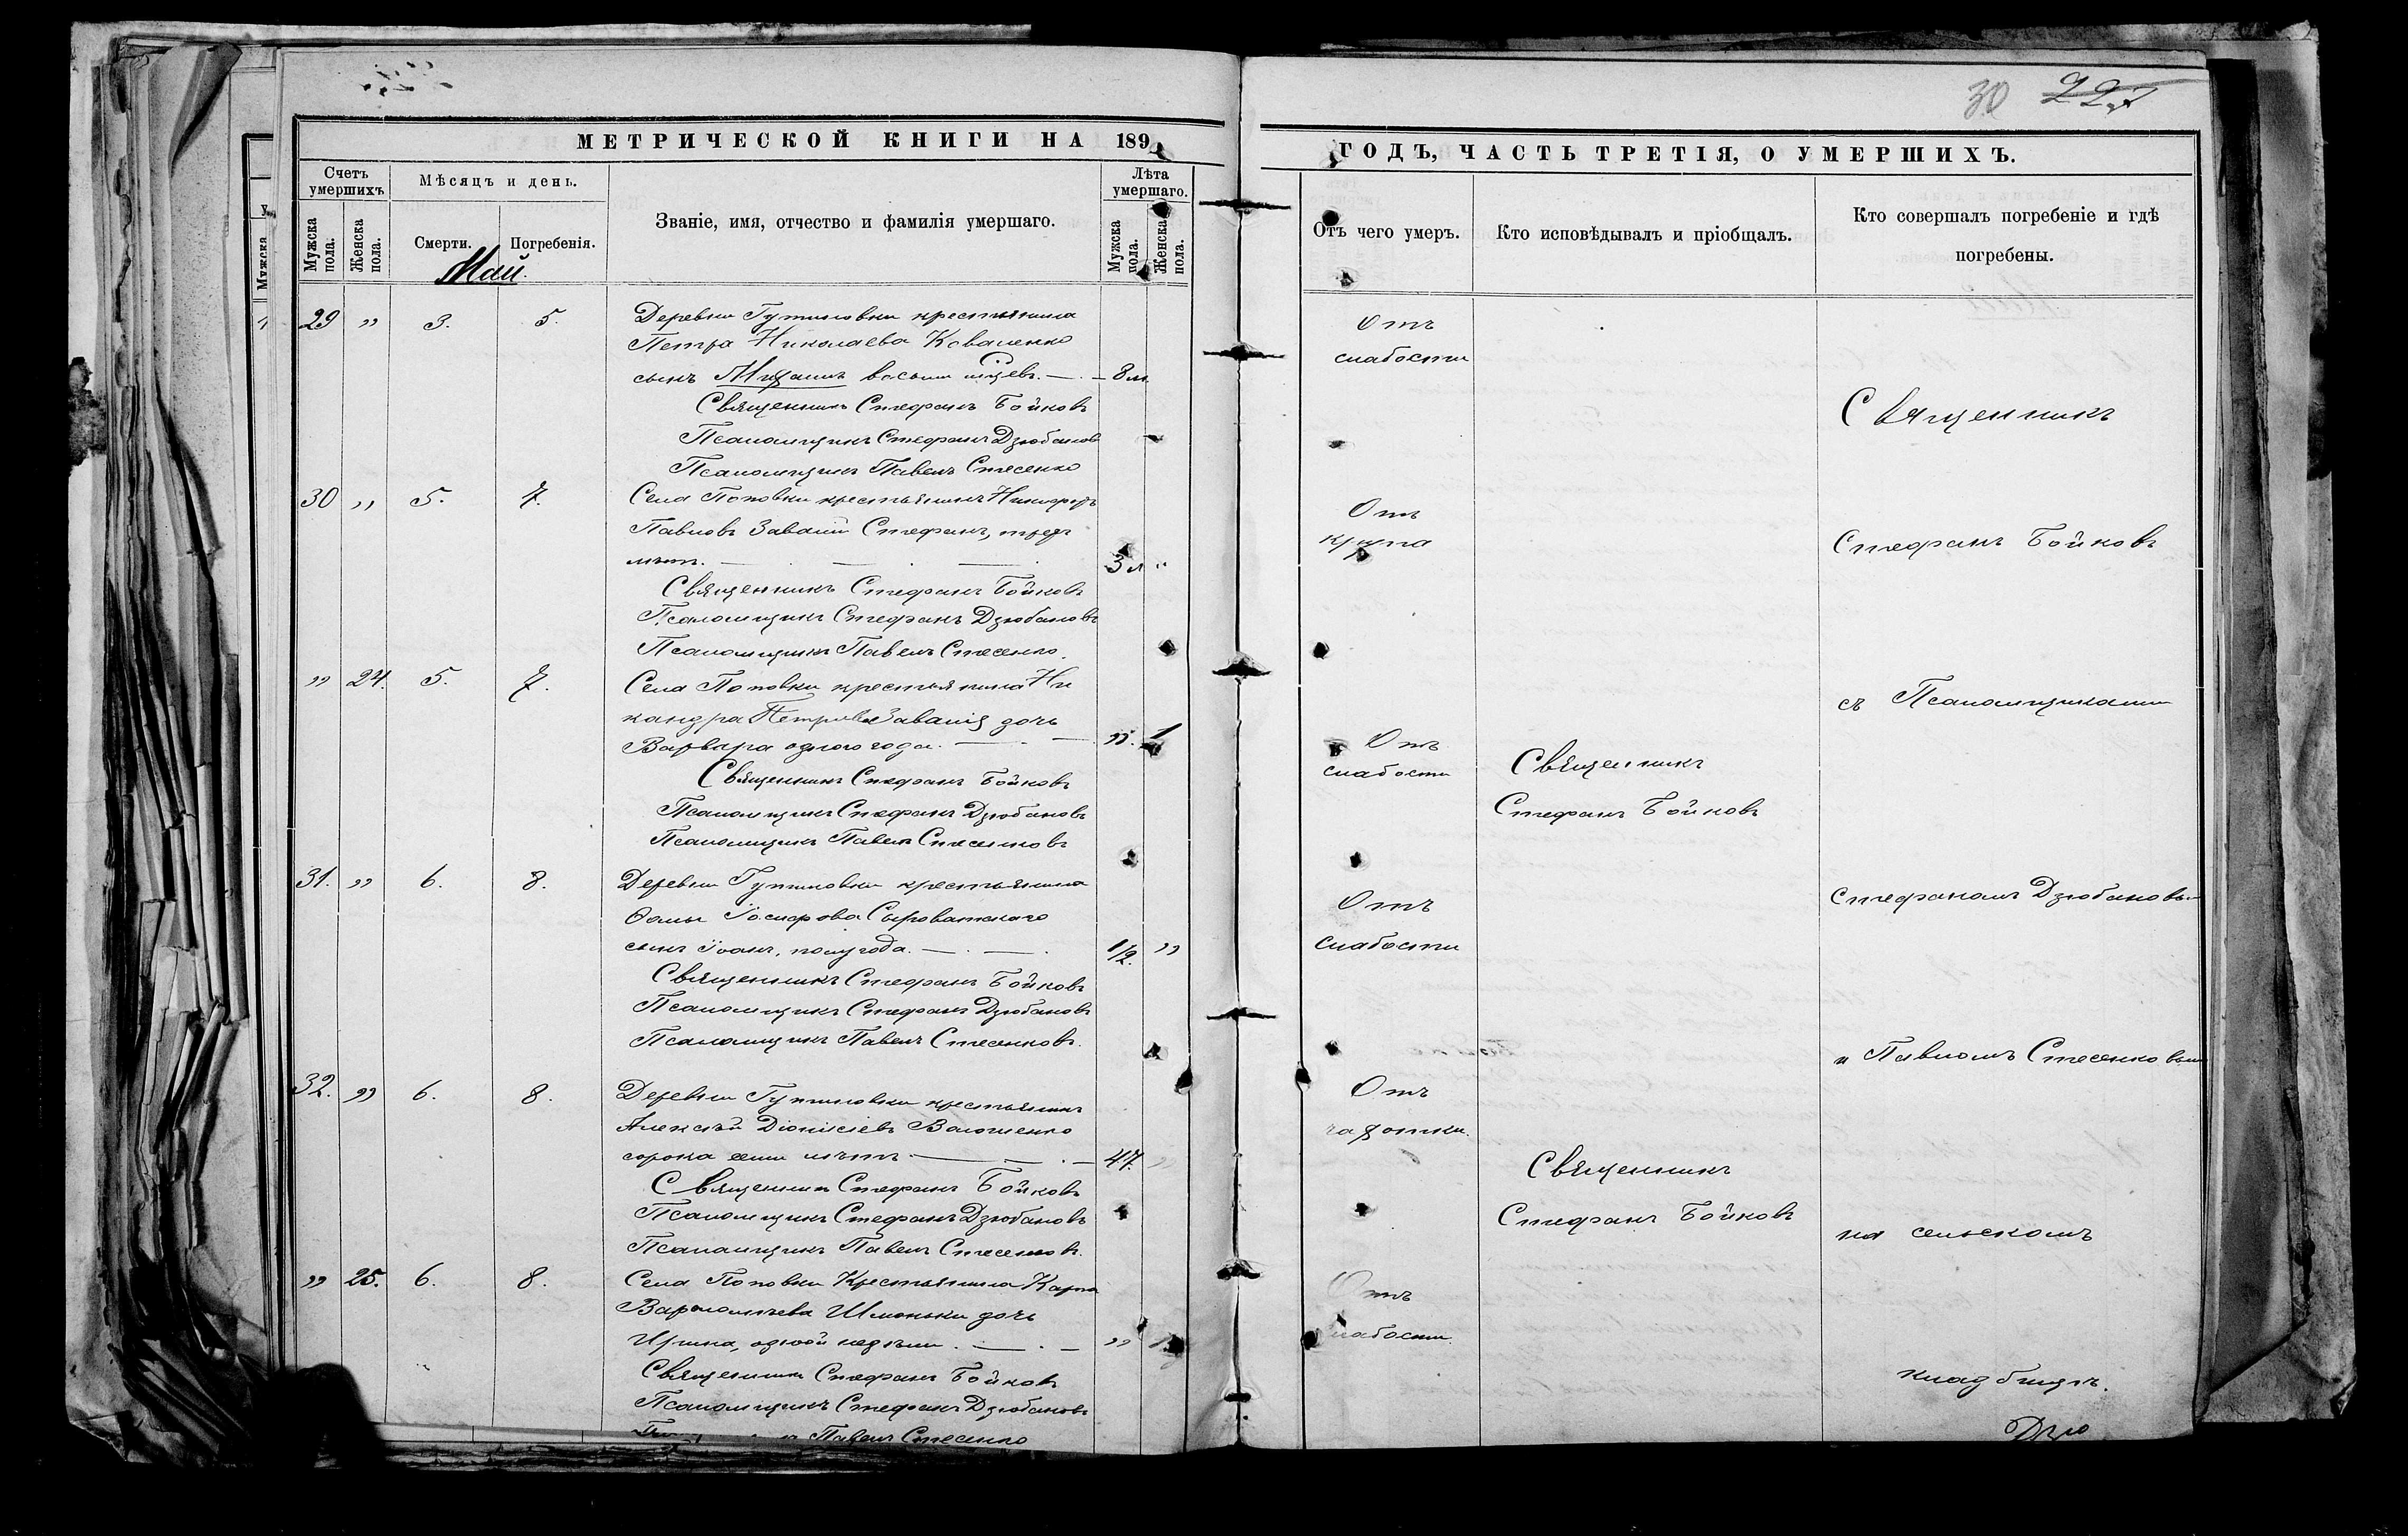 30 227
МЕТРИЧЕСКОЙ КНИГИ НА 189
ГОДЪ, ЧАСТЬ ТРЕТІЯ, О УМЕРШИХЪ.
Счетъ умершихъ
Мужска пола.
Женска пола.
Мѣсяцъ и день.
Смерти.
Погребенія.
Званіе, имя, отчество и фамилія умершаго.
Лѣта умершаго.
Мужска пола.
Женска пола.
Отъ чего умеръ.
Кто исповѣдывалъ и пріобщалъ.
Кто совершалъ погребеніе и гдѣ
погребены.
Май
29 " 3. 5. Деревни Гутиловки крестьянина
Петра Николаева Коваленко
сынъ восьми мцевъ. — 8 м.
Священникъ Стефанъ Бойковъ
Псаломщикъ Стефанъ Дзюбановъ
Псаломщикъ Павелъ Стесенко
Отъ
слабости
30 " 5. 7. Села Поповки крестьянинъ Никифоръ
Павловъ Завалій Стефанъ, трехъ
лѣтъ. 3 л "
Священникъ Стефанъ Бойковъ
Псаломщикъ Стефанъ Дзюбановъ
Псаломщикъ Павелъ Стесенко.
Отъ
крупа
" 24. 5. 7. Села Поповки крестьянина Ни
кандра Петрова Завалія дочь
Варвара одного года. — " 1
Священникъ Стефанъ Бойковъ
Псаломщикъ Стефанъ Дзюбановъ
Псаломщикъ Павелъ Стесенковъ
Отъ
слабости
Священникъ
Стефанъ Бойковъ
31. " 6. 8. Деревни Гутиловки крестьянина
Ѳомы Іосифова Сыроватскаго
сынъ Іоанъ, полугода. — 1/2. "
Священникъ Стефанъ Бойковъ
Псаломщикъ Стефанъ Дзюбановъ
Псаломщикъ Павелъ Стесенковъ.
Отъ
слабости
32. " 6. 8. Деревни Гутиловки крестьянинъ
Алексѣй Діонисіевъ Волошенко
сорока семи лѣтъ — 47. "
Священникъ Стефанъ Бойковъ
Псаломщикъ Стефанъ Дзюбановъ
Псаломщикъ Павелъ Стесенковъ.
Отъ
чахотки.
Священникъ
Стефанъ Бойковъ
" 25. 6. 8. Села Поповки Крестьянина Карпа
Варфоломѣева Шмоньки дочь
Ирина, одной недѣли. — " 1
Священникъ Стефанъ Бойковъ
Псаломщикъ Стефанъ Дзюбановъ
Павелъ Стесенко
Отъ
слабости.
Священникъ
Стефанъ Бойковъ
съ Псаломщиками
Стефаномъ Дзюбановы
и Павломъ Стесенковым
на сельскомъ
кладбищѣ.
Дзю